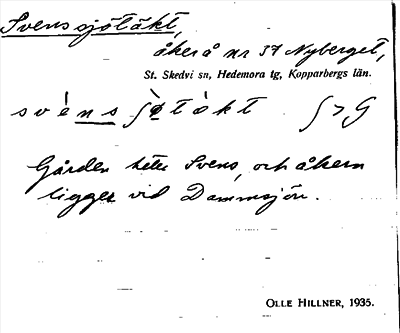 Svenssjötäkt,
åker å nr 37 Nyberget,
St. Skedvi sn, Hedemora tg, Kopparbergs län.
Gården heter Svens, och åkern
ligger vid Dammsjön.
OLLE HILLNER, 1935.